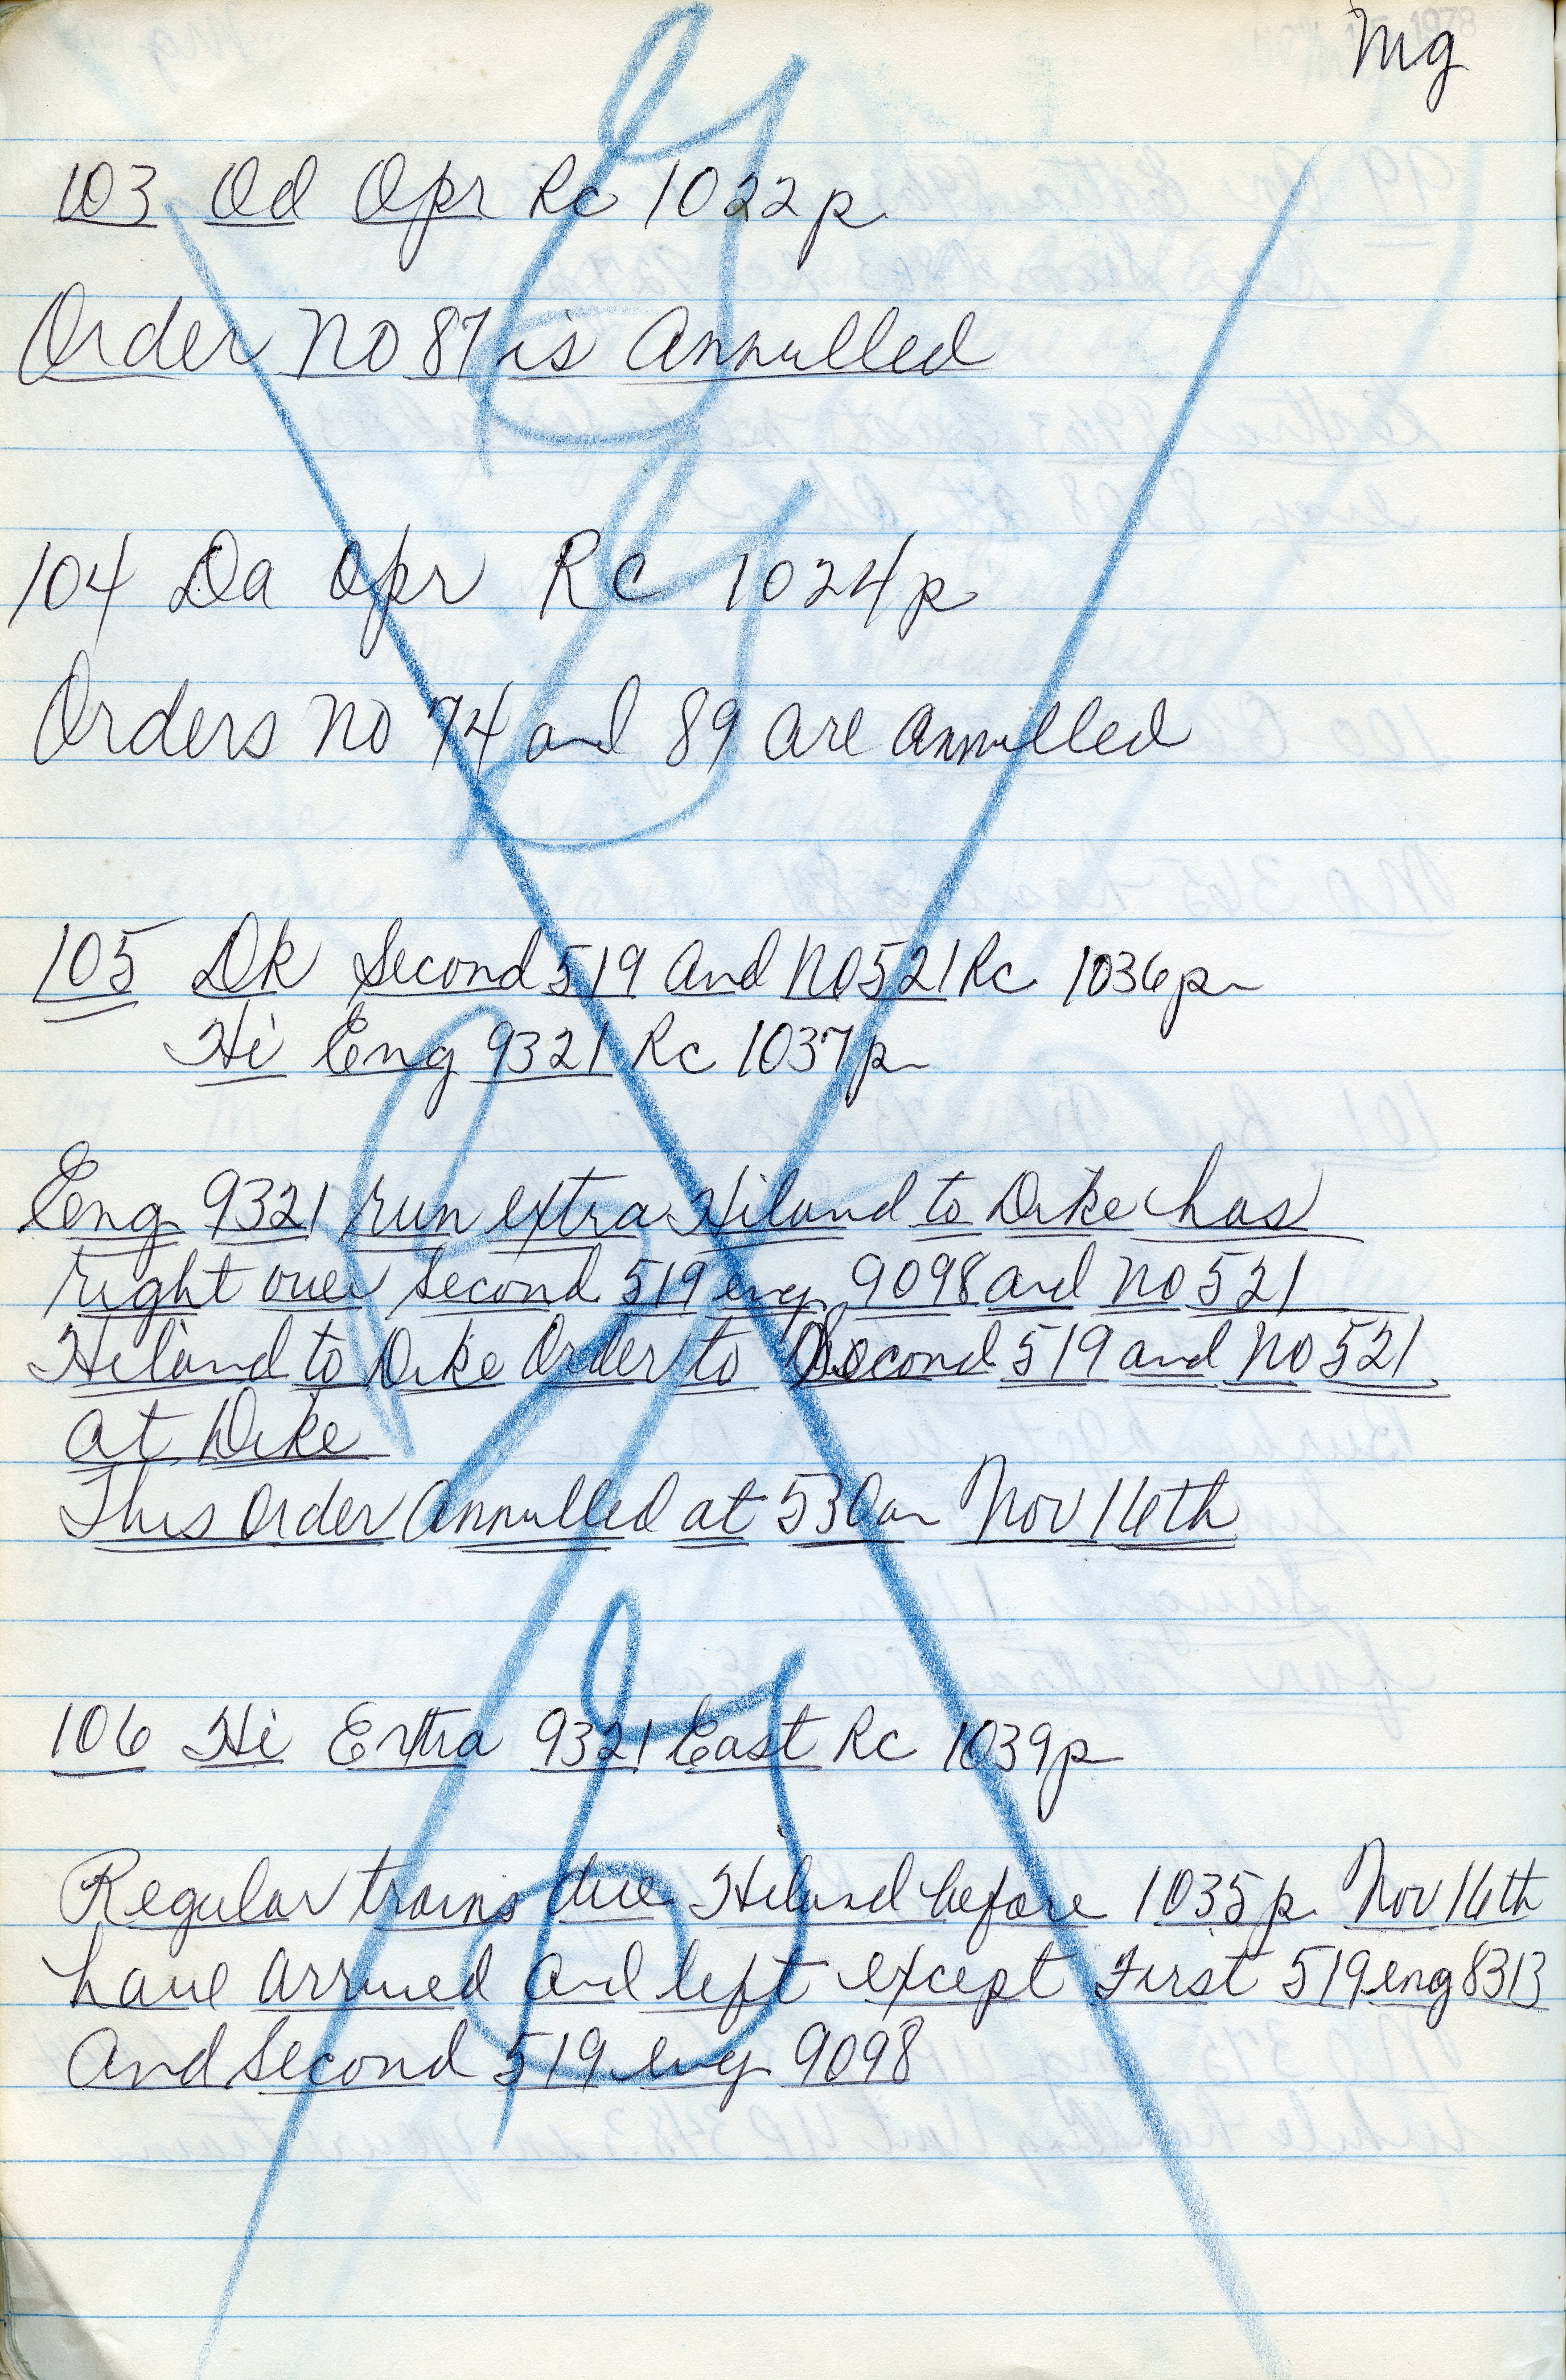 Mg
1978
103 Od Opr Rc 1022p
Order No 87 is Annulled
104 Da Opr Rc 1024p
Orders No 74 and 89 are annulled
105 Dk Second 519 and No 521 Rc 1036p
Hi Eng 9321 Rc 1037p
Eng 9321 run extra Hiland to Dike has
right over Second 519 eng 9098 and No 521
Hiland to Dike Order to Second 519 and No 521
at Dike
This Order Annulled at 530am Nov 16th
106 Hi Extra 9321 East Rc 1039p
Regular trains due Hiland before 1035p Nov 16th
have arrived and left except First 519 eng 8313
And Second 519 eng 9098